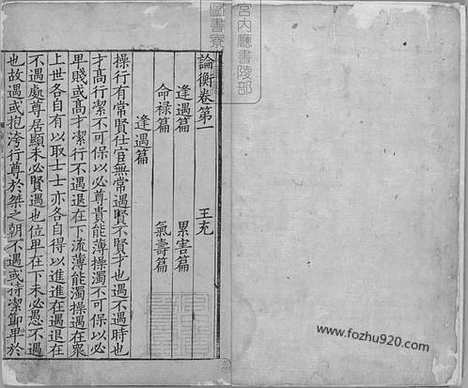 宮内廳書陵部
圖書寮
論衡卷第一
王充
逢遇篇
累害篇
命禄篇
氣壽篇
逢遇篇
操行有常賢仕宦無常遇賢不賢才也遇不遇時也
才髙行潔不可以必尊貴能薄操濁不可以必
卑賤或髙才潔行不遇退在下流薄能濁操遇在衆
上世各自有以取士士亦各自得以進進在遇退在
不遇處尊居顯未必賢遇也位卑在下未必愚不遇
也故遇或抱洿行尊於桀之朝不遇或持潔節卑於
www.fozhu920.com